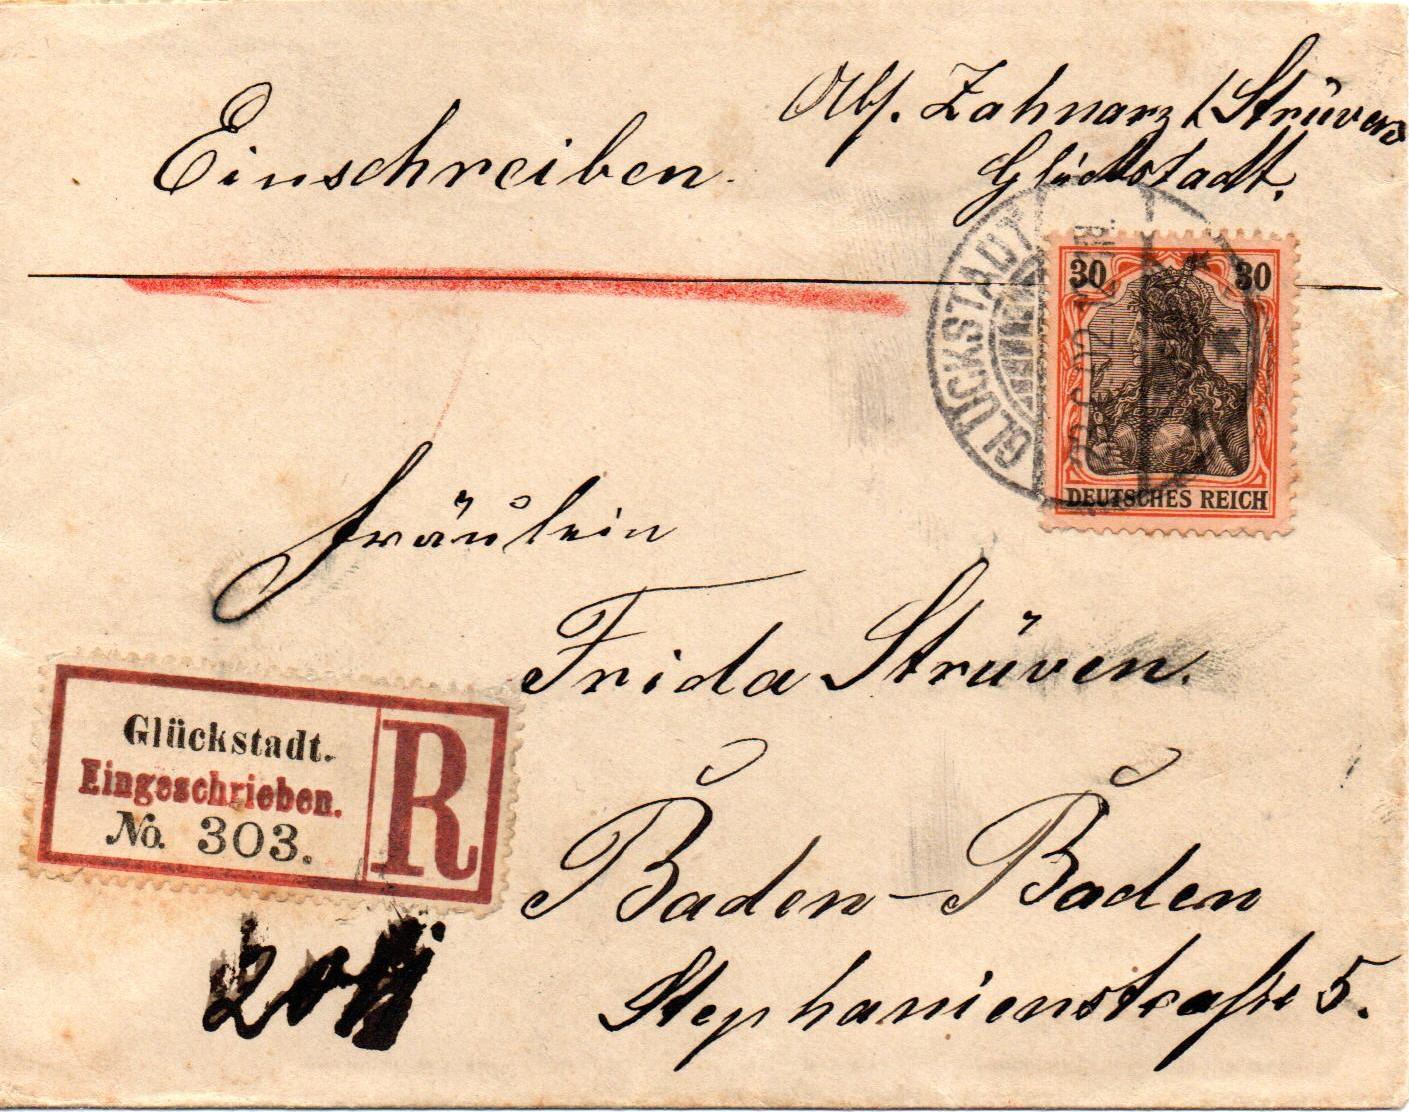 Einschreiben.
Abs. Zahnarzt Strüven
Glückstadt.
GLÜCKSTADT
30 30
DEUTSCHES REICH
Fräulein
Frida Strüven.
Glückstadt.
Eingeschrieben.
No. 303.
R
Baden-Baden
Stephanienstraße 5.